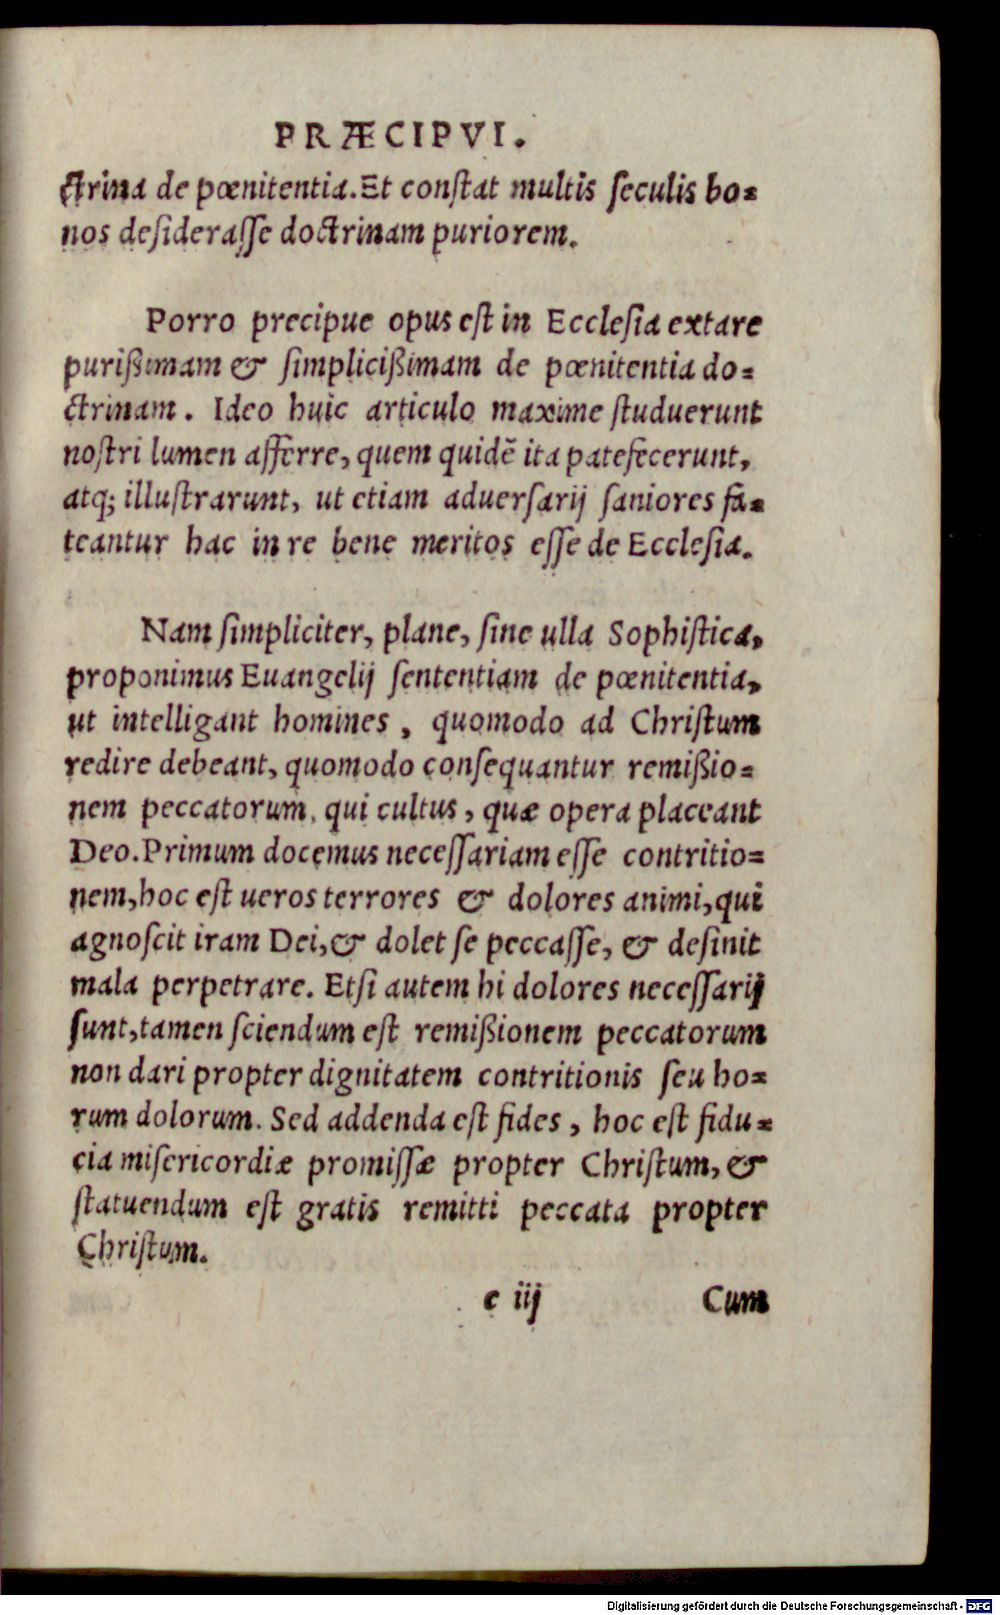 PRÆCIPVI.
ctrina de pœnitentia. Et conſtat multis ſeculis bo⸗
nos deſideraſſe doctrinam puriorem.
Porro precipue opus eſt in Eccleſia extare
purißimam & ſimplicißimam de pœnitentia do⸗
ctrinam. Ideo huic articulo maxime ſtuduerunt
noſtri lumen afferre, quem quidẽ ita patefecerunt,
atq; illuſtrarunt, ut etiam aduerſarij ſaniores fa⸗
teantur hac in re bene meritos eſſe de Eccleſia.
Nam ſimpliciter, plane, ſine ulla Sophiſtica,
proponimus Euangelij ſententiam de pœnitentia,
ut intelligant homines, quomodo ad Chriſtum
redire debeant, quomodo conſequantur remißio⸗
nem peccatorum, qui cultus, quæ opera placeant
Deo. Primum docemus neceſſariam eſſe contritio⸗
nem, hoc eſt ueros terrores & dolores animi, qui
agnoſcit iram Dei, & dolet ſe peccaſſe, & deſinit
mala perpetrare. Etſi autem hi dolores neceſſarij
ſunt, tamen ſciendum eſt remißionem peccatorum
non dari propter dignitatem contritionis ſeu ho⸗
rum dolorum. Sed addenda eſt fides, hoc eſt fidu⸗
cia miſericordiæ promiſſæ propter Chriſtum, &
ſtatuendum eſt gratis remitti peccata propter
Chriſtum.
c iij Cum
Digitalisierung gefördert durch die Deutsche Forschungsgemeinschaft - DFG